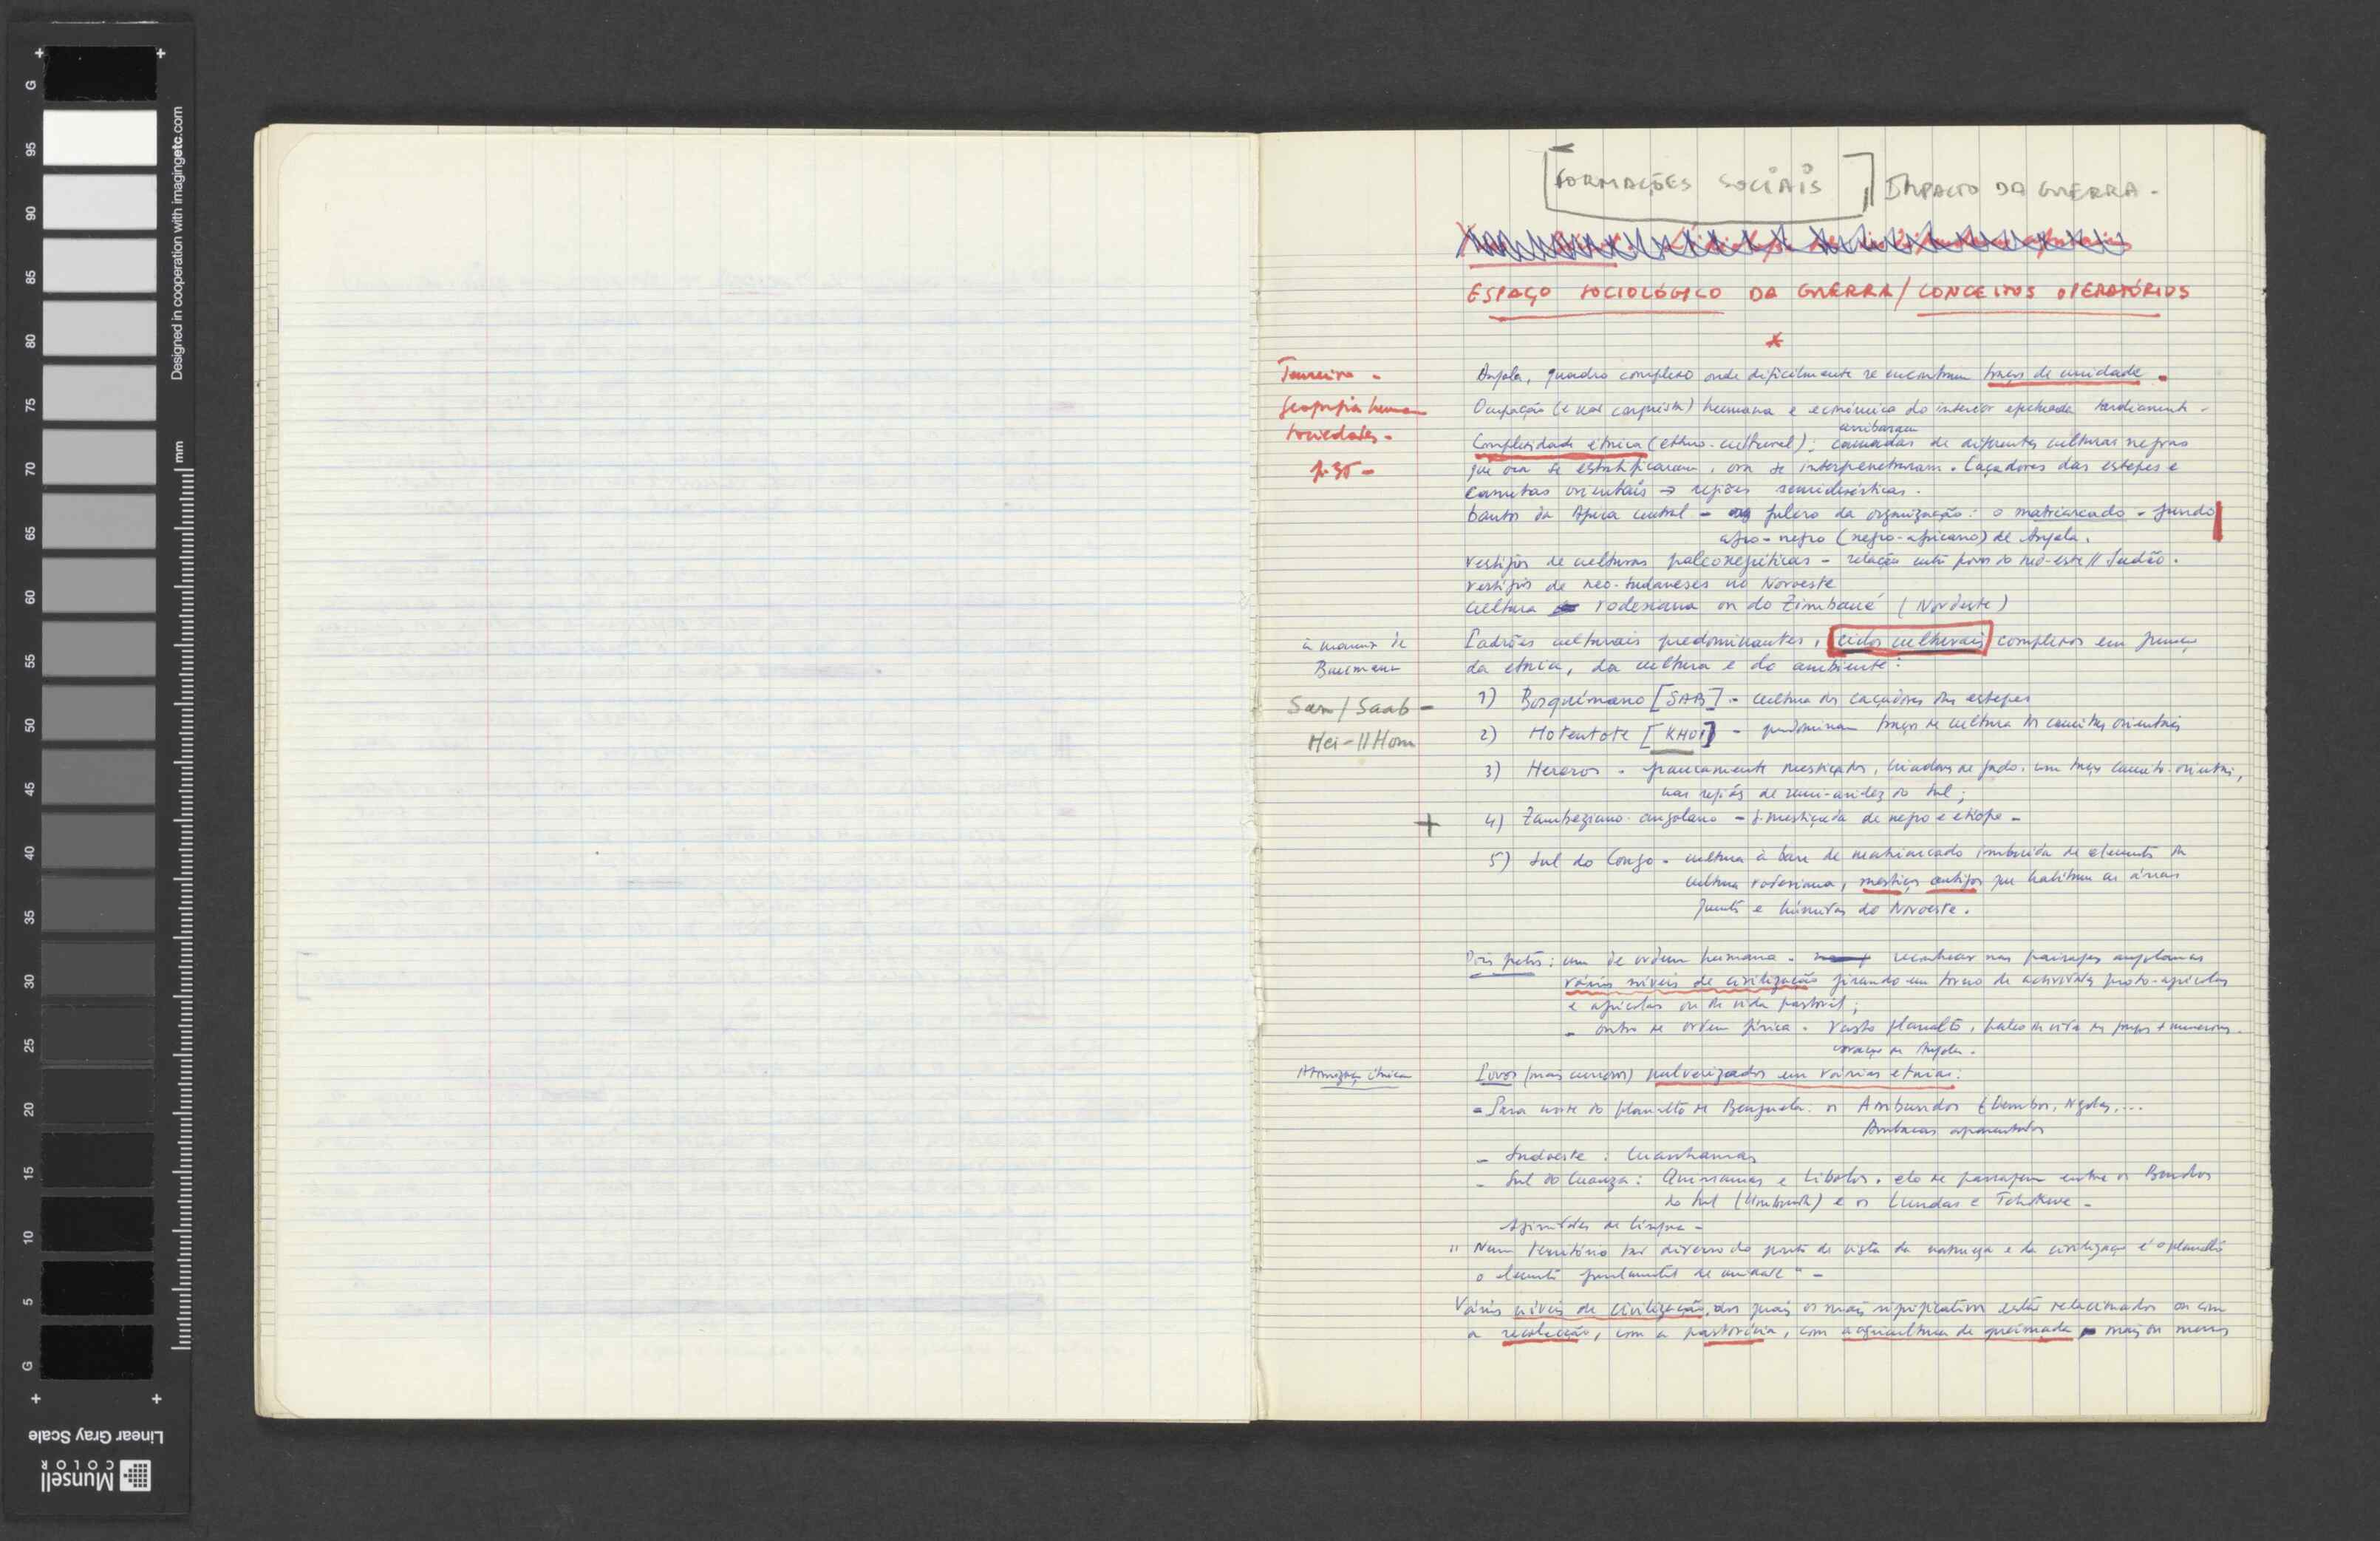 FORMAÇÕES SOCIAIS IMPACTO DA GUERRA -
ESPAÇO SOCIOLÓGICO DA GUERRA / CONCEITOS OPERATÓRIOS
*
geografia humana
sociedades -
p. 35 -
Angola, quadro complexo onde dificilmente se encontram traços de unidade.
Ocupação (e não conquista) humana e económica do interior efectuada tardiamente -
arribaram
Complexidade étnica (ethno-cultural): camadas de diferentes culturas negras
que ora se estratificaram, ora se interpenetraram. Caçadores das estepes e
camitas orientais → regiões semidesérticas.
bantos da África central - fulcro da organização: o matriarcado - fundo
afro-negro (negro-africano) de Angola.
vestígios de culturas paleonegríticas - relação entre povos do // Sudão.
vestígios de neo-sudaneses no Noroeste
cultura rodesiana ou do Zimbaué (Nordeste)
à maneira de
Baumann
Padrões culturais predominantes, ciclos culturais complexos em função
da etnia, da cultura e do ambiente:
San / Saab -
Hei-//Hom
1) Bosquímano [SAB] - cultura dos caçadores das estepes
2) Hotentote [KHOI] - predominam traços de cultura dos camitas orientais
3) Hereros - francamente mestiçados, criadores de gado, com traços camito-orientais,
nas regiões de semi-aridez do Sul;
+
4) Zambeziano-angolano - mestiçada de negro e etíope -
5) Sul do Congo - cultura à base de matriarcado imbuída de elementos da
cultura rodesiana, mestiços antigos que habitam as áreas
quentes e húmidas do Noroeste.
Dois factos: um de ordem humana - reconhecer nas paisagens angolanas
vários níveis de civilização girando em torno de actividades proto-agrícolas
e agrícolas ou de vida pastoril;
- outro de ordem física - vasto planalto, palco da vida dos grupos + numerosos.
coração de Angola.
Atomização étnica
Povos (mais numerosos) pulverizados em várias etnias:
- Para norte do planalto de Benguela: os Ambundos (Dembos, Ngolas, ...
Ambacas aparentados
- Sudoeste: Cuanhamas
- Sul do Cuanza: Quissamas e Libolos, elo de passagem entre os Bundos
do Sul (Umbundu) e os Lundas e Tchokwe -
Afinidades de língua -
"Num território tão diverso do ponto de vista da natureza e da civilização é o planalto
o elemento fundamental de unidade" -
Vários níveis de civilização, dos quais os mais significativos estão relacionados ou com
a recolecção, com a pastorícia, com a agricultura de queimada mais ou menos
G
95
90
85
80
75
70
65
60
55
50
45
40
35
30
25
20
15
10
5
G
mm
Designed in cooperation with imagingetc.com
Linear Gray Scale
Munsell
COLOR